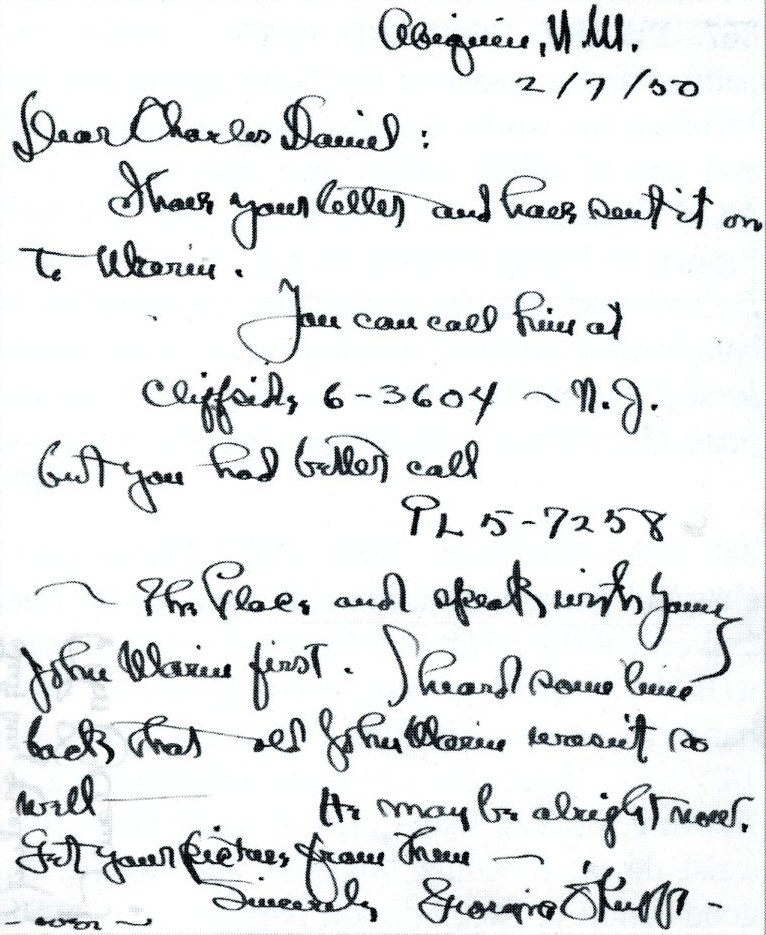 Abiquiu, N.M.
2/7/50
Dear Charles Daniel:
I have your letter and have sent it on
to Marin.
You can call him at
Cliffside 6-3604 ~ N.J.
but you had better call
PL 5-7258
~ The Place and speak with young
John Marin first. I heard some time
back that old John Marin wasn't so
well — He may be alright now.
Get your pictures from them —
Sincerely Georgia O'Keeffe -
- over ~